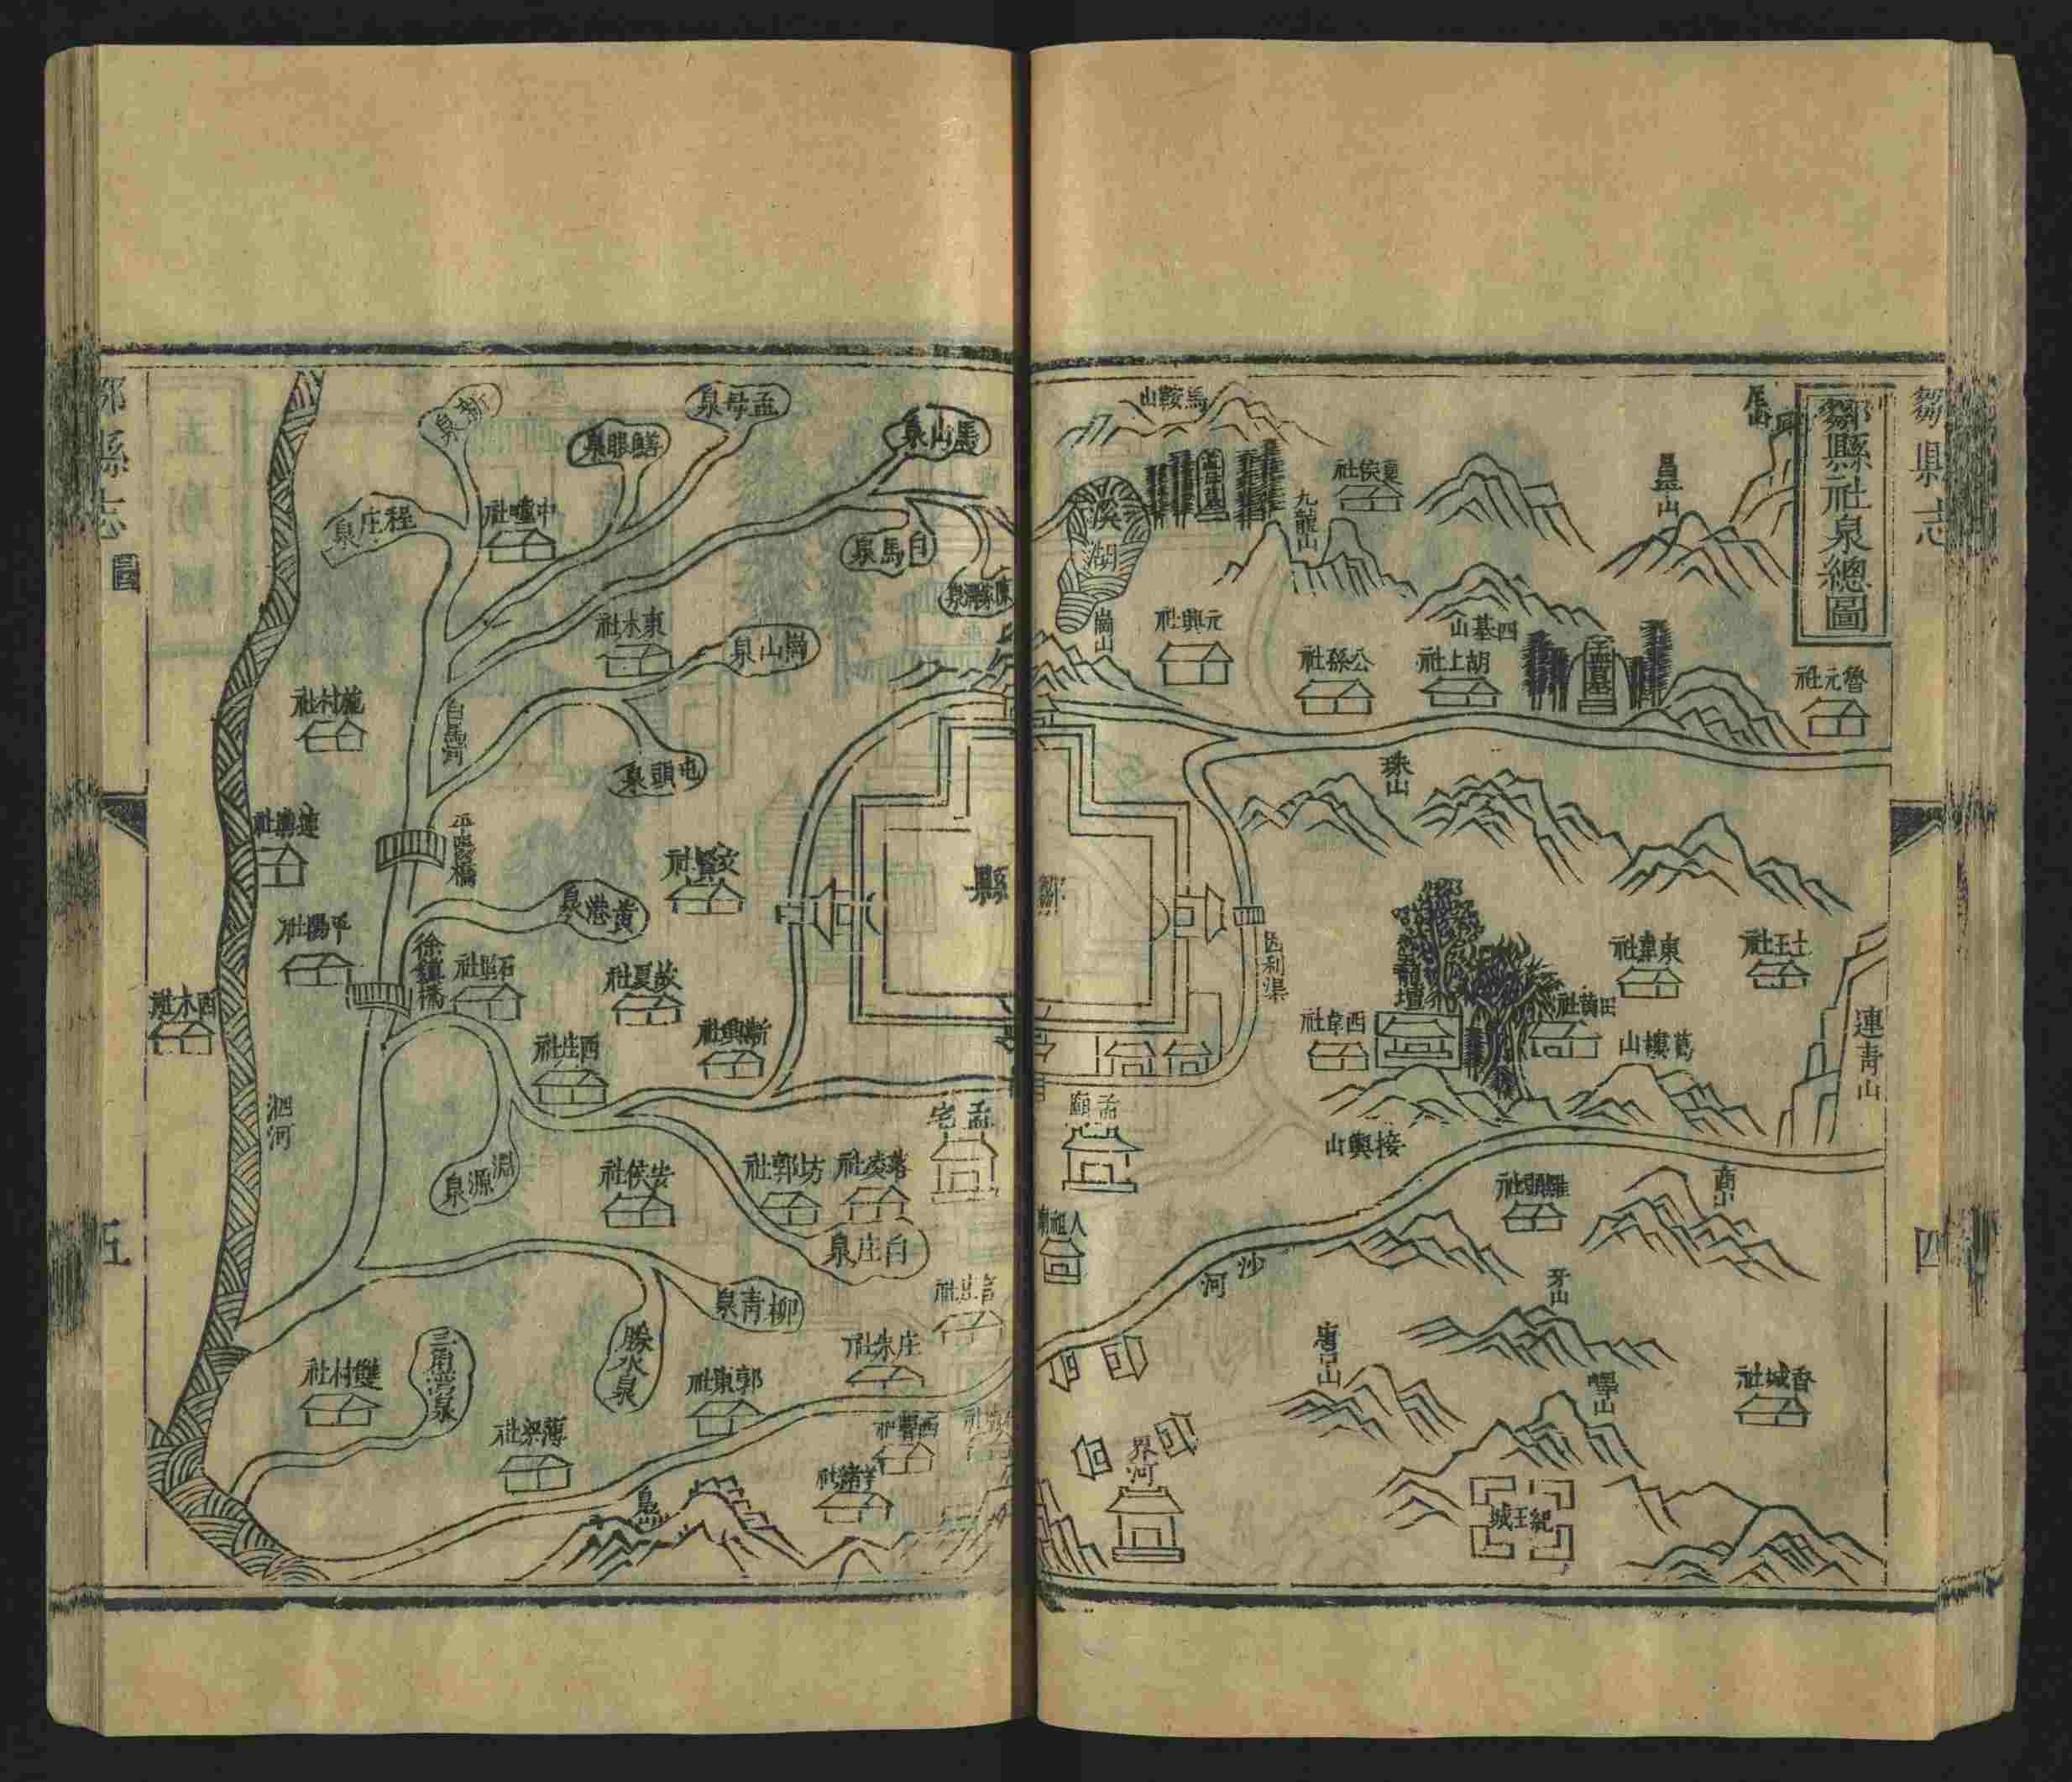 鄒縣志
四
鄒縣社泉總圖
尼山
昌山
夏侯社
九龍山
馬鞍山
孟母墓
溪湖
崗山
元興社
公孫社
四基山
胡上社
孟墓
魯元社
珠山
連青山
土王社
東韋社
田黃社
舊樓山
西韋社
接輿山
因利渠
鄒縣
孟廟
孟宅
人祖廟
羅頭社
高山
沙河
牙山
唐口山
嶧山
香城社
紀王城
界河
馬山泉
白馬泉
陳家溝泉
孟母泉
鱔眼泉
新泉
程庄泉
中疃社
東木社
崗山泉
屯頭泉
白馬河
平陽橋
龍村社
連興社
平陽社
西木社
泗河
徐鎮橋
石墻社
黃港泉
文賢社
故夏社
新興社
西庄社
淵源泉
安侯社
坊郭社
落凌社
白庄泉
柳青泉
勝水泉
三角灣泉
雙村社
薄梁社
郭東社
庄朱社
鄒縣志
圖
五